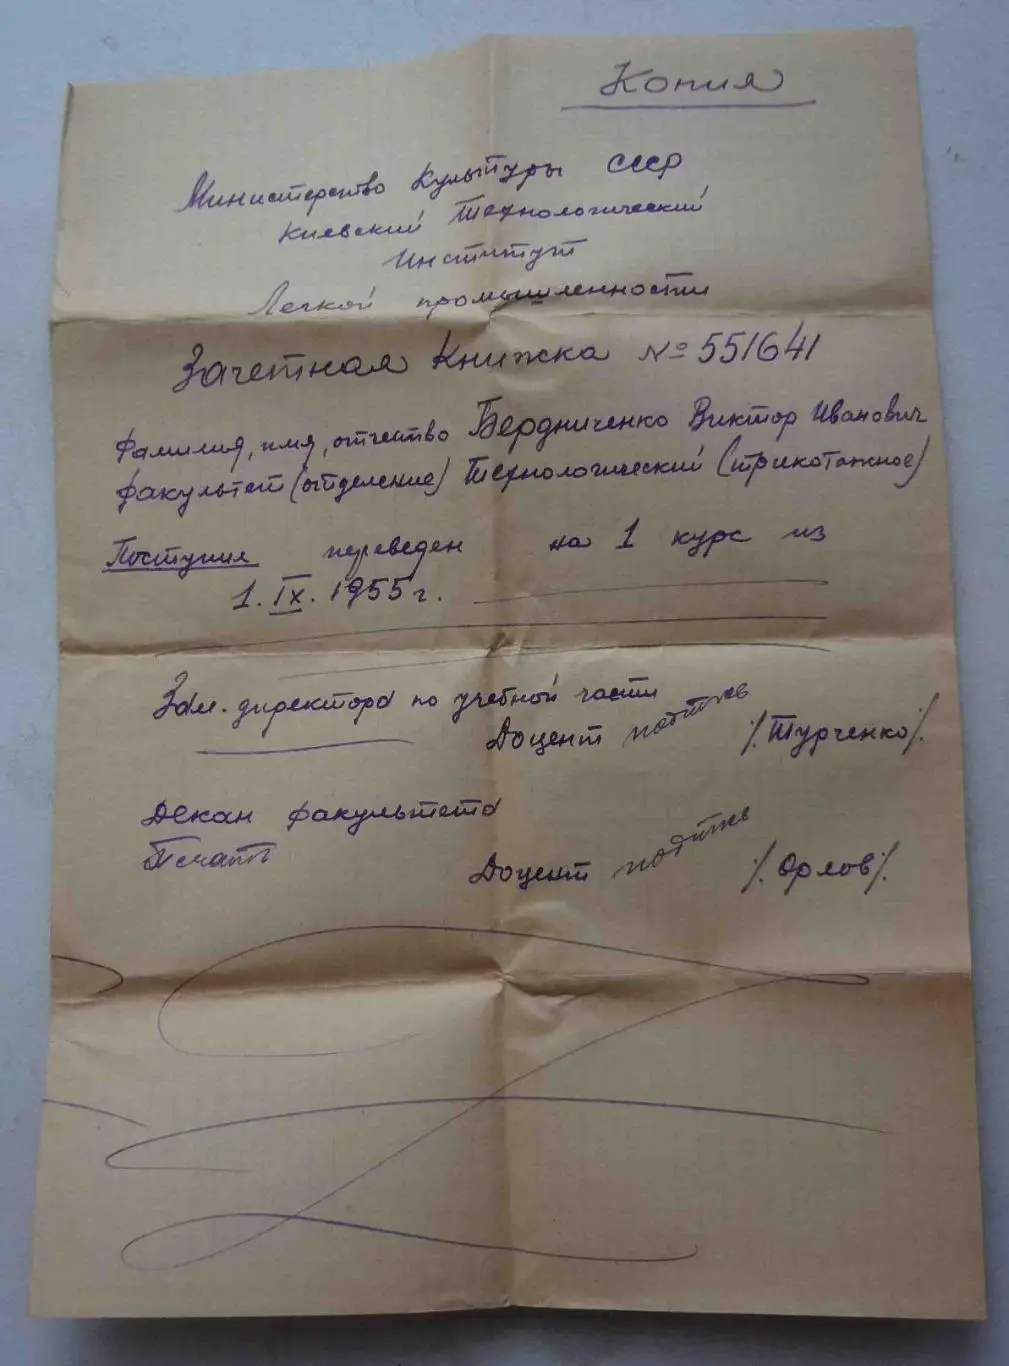 Копия
Министерство Культуры СССР
Киевский Технологический
Институт
Легкой промышленности
Зачетная Книжка № 551641
Фамилия, имя, отчество Бердниченко Виктор Иванович
факультет (отделение) Технологический (трикотажное)
Поступил переведен на 1 курс из
1. IX. 1955 г.
Зам. директора по учебной части
Доцент подпись /.Турченко/.
Декан факультета
Печать
Доцент подпись /.Орлов/.